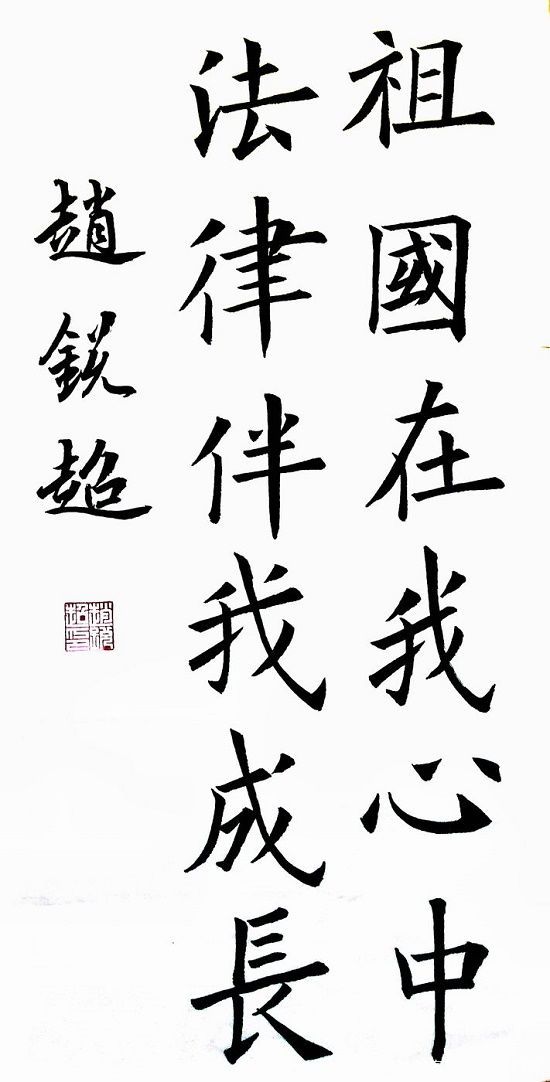 祖國在我心中
法律伴我成長
趙銳超